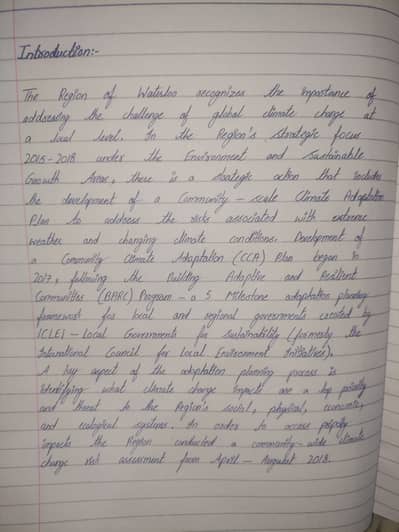 Introduction:-
The Region of Waterloo recognizes the importance of
addressing the challenge of global climate change at
a local level. In the Region's strategic focus
2015-2018 under the Environment and Sustainable
Growth Area, there is a strategic action that includes
the development of a Community-scale Climate Adaptation
Plan to address the risks associated with extreme
weather and changing climate conditions. Development of
a Community Climate Adaptation (CCA) Plan began in
2017, following the Building Adaptive and Resilient
Communities (BARC) Program - a 5 Milestone adaptation planning
framework for local and regional governments created by
ICLEI - Local Governments for Sustainability (formerly the
International Council for Local Environment Initiatives).
A key aspect of the adaptation planning process is
identifying what climate change impacts are a top priority
and threat to the Region's social, physical, economic,
and ecological systems. In order to access priority
impacts the Region conducted a community-wide climate
change risk assessment from April - August 2018.